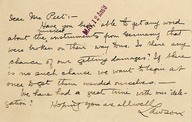 Dear Mr Peet:-
Have you been able to get any word
about the instruments from Germany that
were broken on their way here. Is there any
chance of our getting damages? If there
is no such chance we want to begin at
once to get them mended ourselves -
We have had a great time with our dele-
gation! Hoping you are all well,